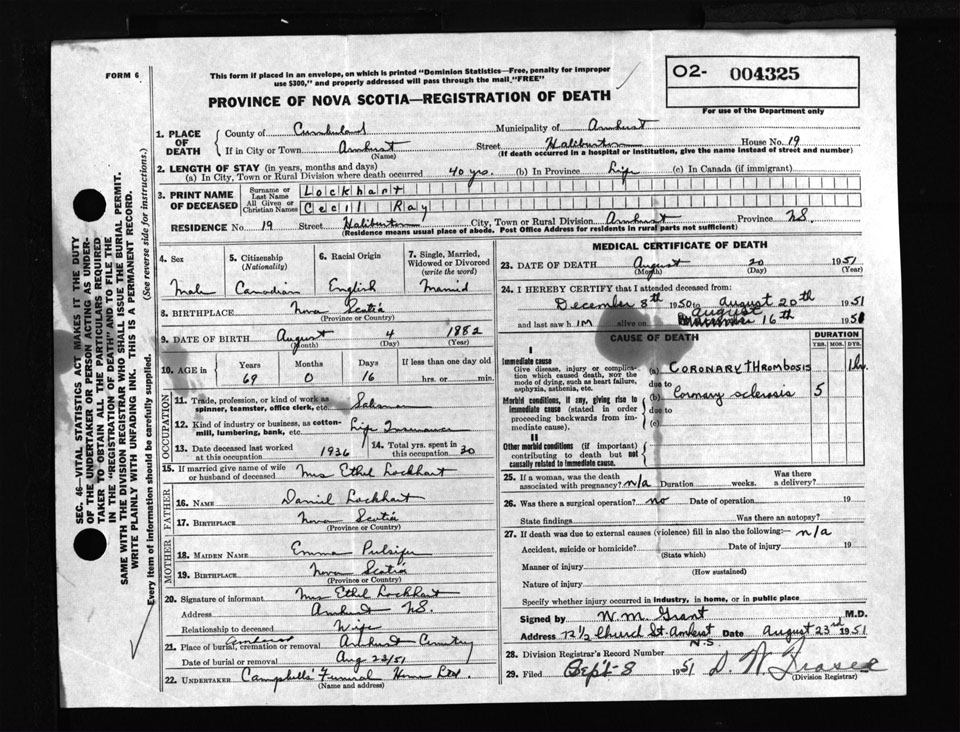 FORM 6
This form if placed in an envelope, on which is printed "Dominion Statistics—Free, penalty for improper
use $300," and properly addressed will pass through the mail "FREE"
PROVINCE OF NOVA SCOTIA—REGISTRATION OF DEATH
O2- 004325
For use of the Department only
1. PLACE OF DEATH
County of Cumberland Municipality of Amherst
If in City or Town Amherst Street Haliburton House No. 19
(Name) (If death occurred in a hospital or institution, give the name instead of street and number)
2. LENGTH OF STAY (in years, months and days)
(a) In City, Town or Rural Division where death occurred 40 yrs. (b) In Province Life (c) In Canada (if immigrant)
3. PRINT NAME OF DECEASED
Surname or Last Name Lockhart
All Given or Christian Names Cecil Ray
RESIDENCE No. 19 Street Haliburton City, Town or Rural Division Amherst Province N.S.
(Residence means usual place of abode. Post Office Address for residents in rural parts not sufficient)
4. Sex
Male
5. Citizenship (Nationality)
Canadian
6. Racial Origin
English
7. Single, Married, Widowed or Divorced (write the word)
Married
8. BIRTHPLACE Nova Scotia
(Province or Country)
9. DATE OF BIRTH August 4 1882
(Month) (Day) (Year)
10. AGE in
Years Months Days If less than one day old
69 0 16 hrs. or min.
OCCUPATION
11. Trade, profession, or kind of work as
spinner, teamster, office clerk, etc. Salesman
12. Kind of industry or business, as cotton-
mill, lumbering, bank, etc. Life Insurance
13. Date deceased last worked
at this occupation 1936
14. Total yrs. spent in
this occupation 30
15. If married give name of wife
or husband of deceased Mrs Ethel Lockhart
FATHER
16. NAME Daniel Lockhart
17. BIRTHPLACE Nova Scotia
(Province or Country)
MOTHER
18. MAIDEN NAME Emma Pulsifer
19. BIRTHPLACE Nova Scotia
(Province or Country)
20. Signature of informant Mrs Ethel Lockhart
Address Amherst N.S.
Relationship to deceased Wife
21. Place of burial, cremation or removal Amherst Cemetery
Amherst
Date of burial or removal Aug 22/51
22. UNDERTAKER Campbells' Funeral Home Ltd.
(Name and address)
MEDICAL CERTIFICATE OF DEATH
23. DATE OF DEATH August 20 1951
(Month) (Day) (Year)
24. I HEREBY CERTIFY that I attended deceased from:
December 8th 1950 to August 20th 1951
August
and last saw h im alive on 16th 1951
CAUSE OF DEATH
DURATION
YRS. MOS. DYS.
I
Immediate cause
Give disease, injury or complica-
tion which caused death, not the
mode of dying, such as heart failure,
asphyxia, asthenia, etc.
(a) CORONARY THROMBOSIS 1 hr.
due to
Morbid conditions, if any, giving rise to
immediate cause (stated in order
proceeding backwards from im-
mediate cause).
(b) Coronary sclerosis 5
due to
(c)
II
Other morbid conditions (if important)
contributing to death but not
causally related to immediate cause.
25. If a woman, was the death
associated with pregnancy? n/a Duration weeks. Was there
a delivery?
26. Was there a surgical operation? no Date of operation 19
State findings Was there an autopsy?
27. If death was due to external causes (violence) fill in also the following:— n/a
Accident, suicide or homicide? Date of injury 19
(State which)
Manner of injury
(How sustained)
Nature of injury
Specify whether injury occurred in industry, in home, or in public place
Signed by W. M. Grant M.D.
Address 72 1/2 Church St. Amherst Date August 23rd 1951
N.S.
28. Division Registrar's Record Number
29. Filed Sept 8 1951 D. W. Fraser
(Division Registrar)
SEC. 46—VITAL STATISTICS ACT MAKES IT THE DUTY
OF THE UNDERTAKER OR PERSON ACTING AS UNDER-
TAKER TO OBTAIN ALL THE PARTICULARS REQUIRED
IN THE "REGISTRATION OF DEATH" AND TO FILE THE
SAME WITH THE DIVISION REGISTRAR WHO SHALL ISSUE THE BURIAL PERMIT.
WRITE PLAINLY WITH UNFADING INK. THIS IS A PERMANENT RECORD.
Every item of information should be carefully supplied. (See reverse side for instructions.)